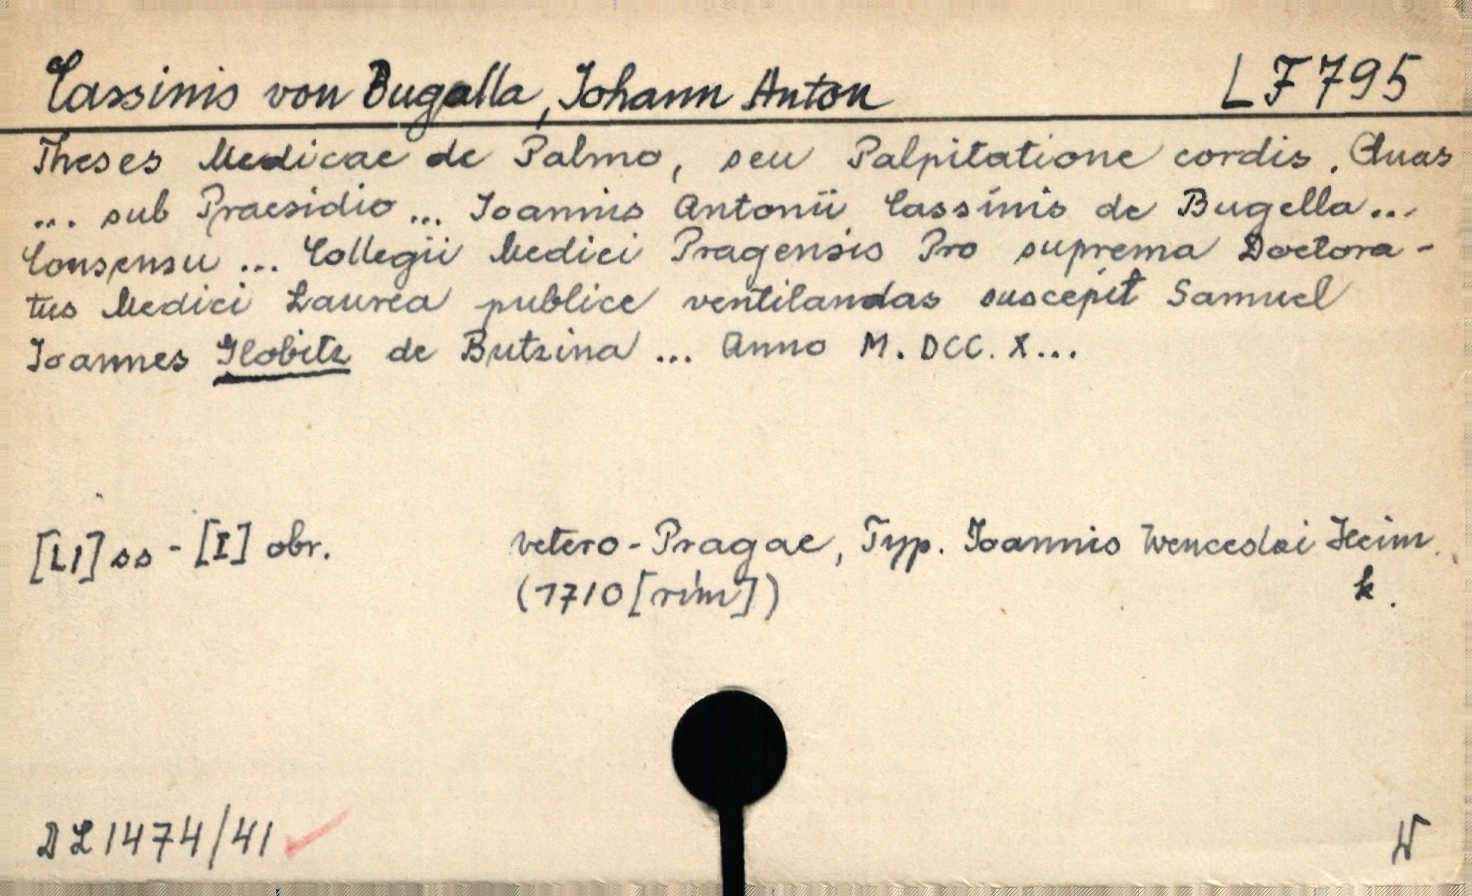 Cassinis von Bugalla, Johann Anton
LF 795
Theses Medicae de Palmo, seu Palpitatione cordis. Quas
... sub Praesidio ... Ioannis Antonii Cassinis de Bugella ...
Consensu ... Collegii Medici Pragensis Pro suprema Doctora-
tus Medici Laurea publice ventilandas suscepit Samuel
Ioannes Globitz de Butzina ... Anno M. DCC. X ...
[LI] ss - [I] obr.
Vetero-Pragae, Typ. Joannis Wenceslai Helm.
(1710 [rim])
k.
DL 1474/41
W